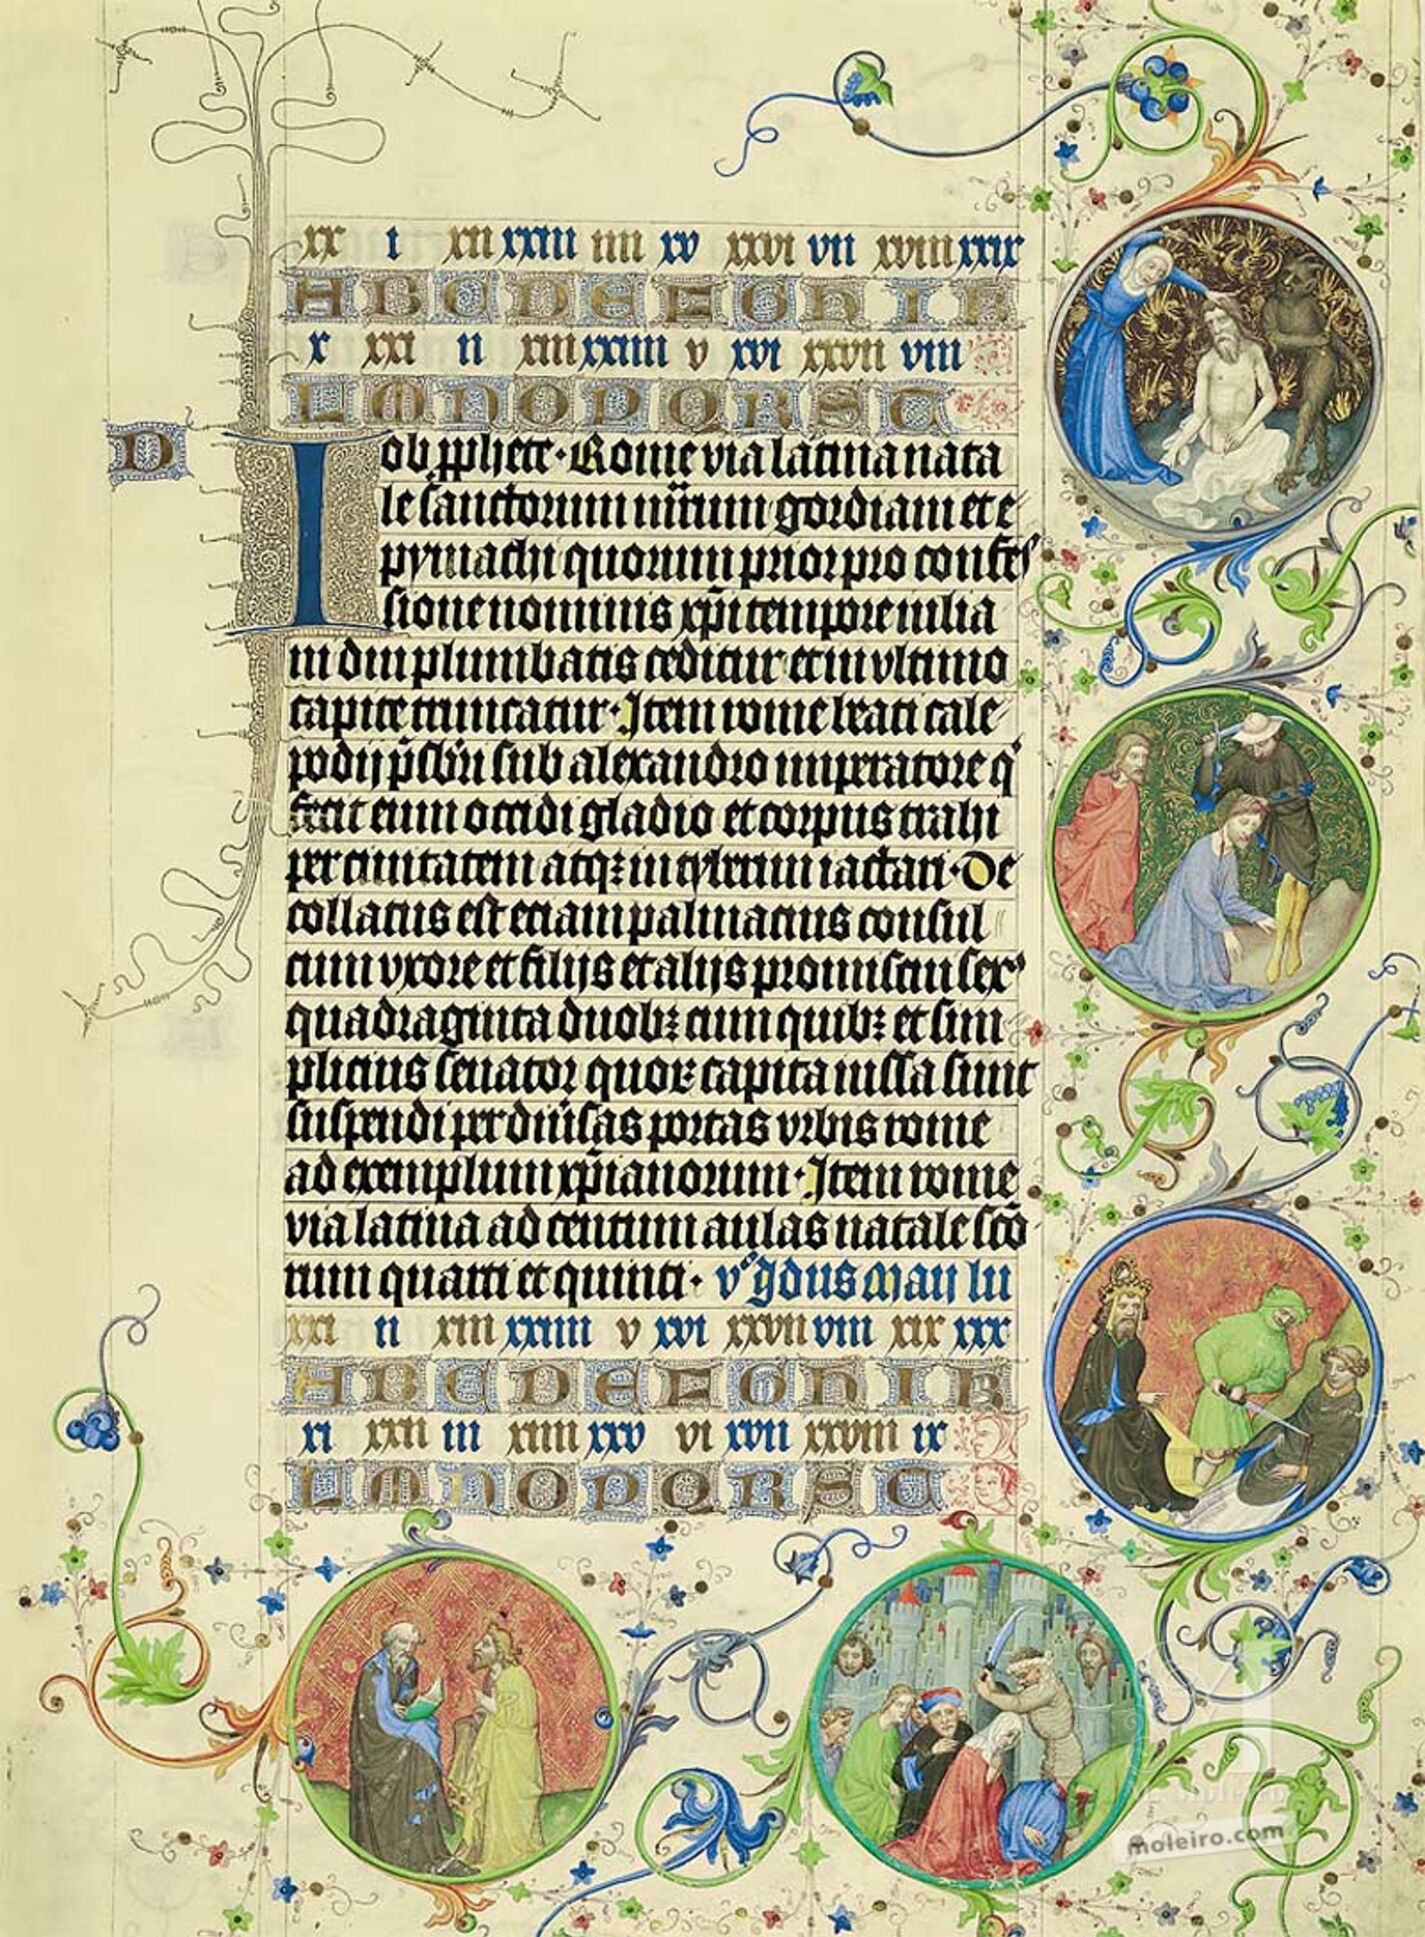 xx i xii xxiii iiii xv xxvi vii xviii xxix
A B C D E F G H I K
x xxi ii xiii xxiiii v xvi xxvii viii
L M N O P Q R S T
D
Iob pphete · Rome via latina nata
le sanctorum mr̄rum gordiani et e
pymachi quorum prior pro confes
sione nominis xp̄i tempore iulia
ni diu plumbatis ceditur et in vltimo
capite truncatur · Item rome beati cale
podij p̄sb̄ri sub alexandro imperatore q
fecit eum occidi gladio et corpus trahi
per ciuitatem atqꝫ in tyberim iactari · De
collatus est etiam palmatius consul
cum vxore et filijs et alijs promiscui sex
quadraginta duobꝫ cum quibꝫ et sim
plicius senator quoꝝ capita iussa sunt
suspendi per diūsas portas vrbis rome
ad exemplum xp̄ianorum · Item rome
via latina ad centum aulas natale sc̄o
rum quarti et quinti · v° ydus Maij lu
xxi ii xiii xxiiii v xvi xxvii viii xix xxx
A B C D E F G H I K
xi xxii iii xiiii xxv vi xvii xxviii ix
L M N O P Q R S T
moleiro.com